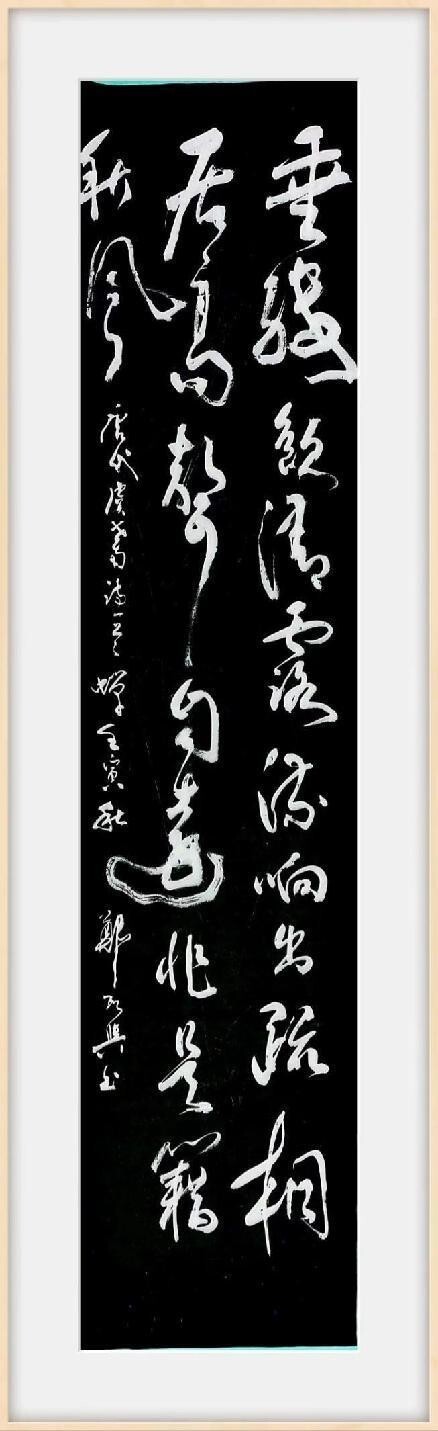 垂緌飲清露流响出疏桐
居高聲自遠非是籍
秋風 唐代虞世南詩一首 蟬 壬寅秋 鄭興书